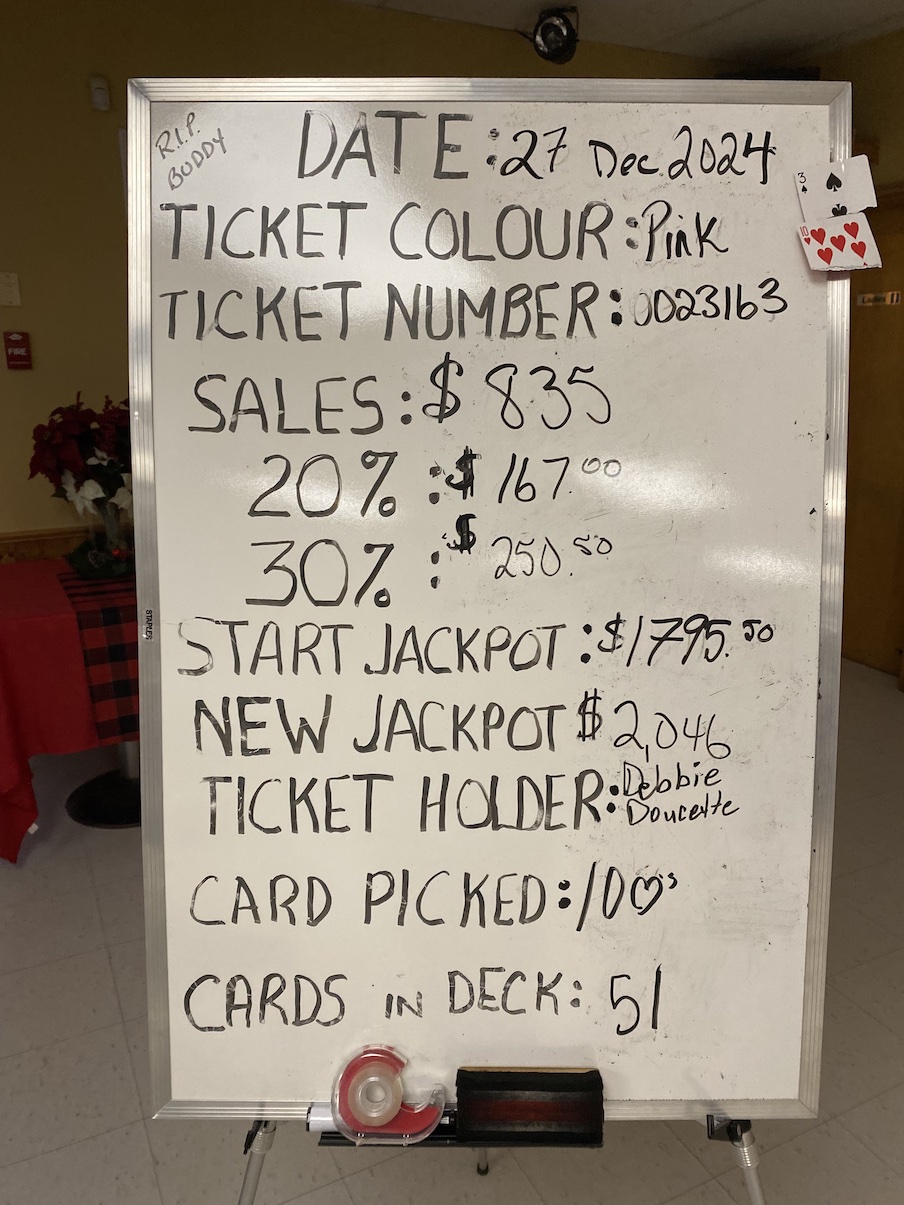 R.I.P.
BUDDY
DATE: 27 Dec. 2024
3
TICKET COLOUR: Pink
10
TICKET NUMBER: 0023163
Ladies
FIRE
SALES: $ 835
20% : $ 167.00
30% : $ 250.50
STAPLES
START JACKPOT: $1795.50
NEW JACKPOT $ 2,046
TICKET HOLDER: Debbie
Doucette
CARD PICKED: 10♡'s
CARDS IN DECK: 51